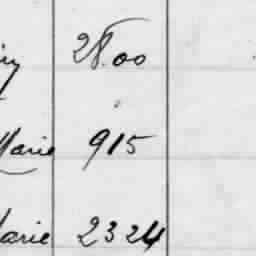 28.00
Marie 915
Marie 2324